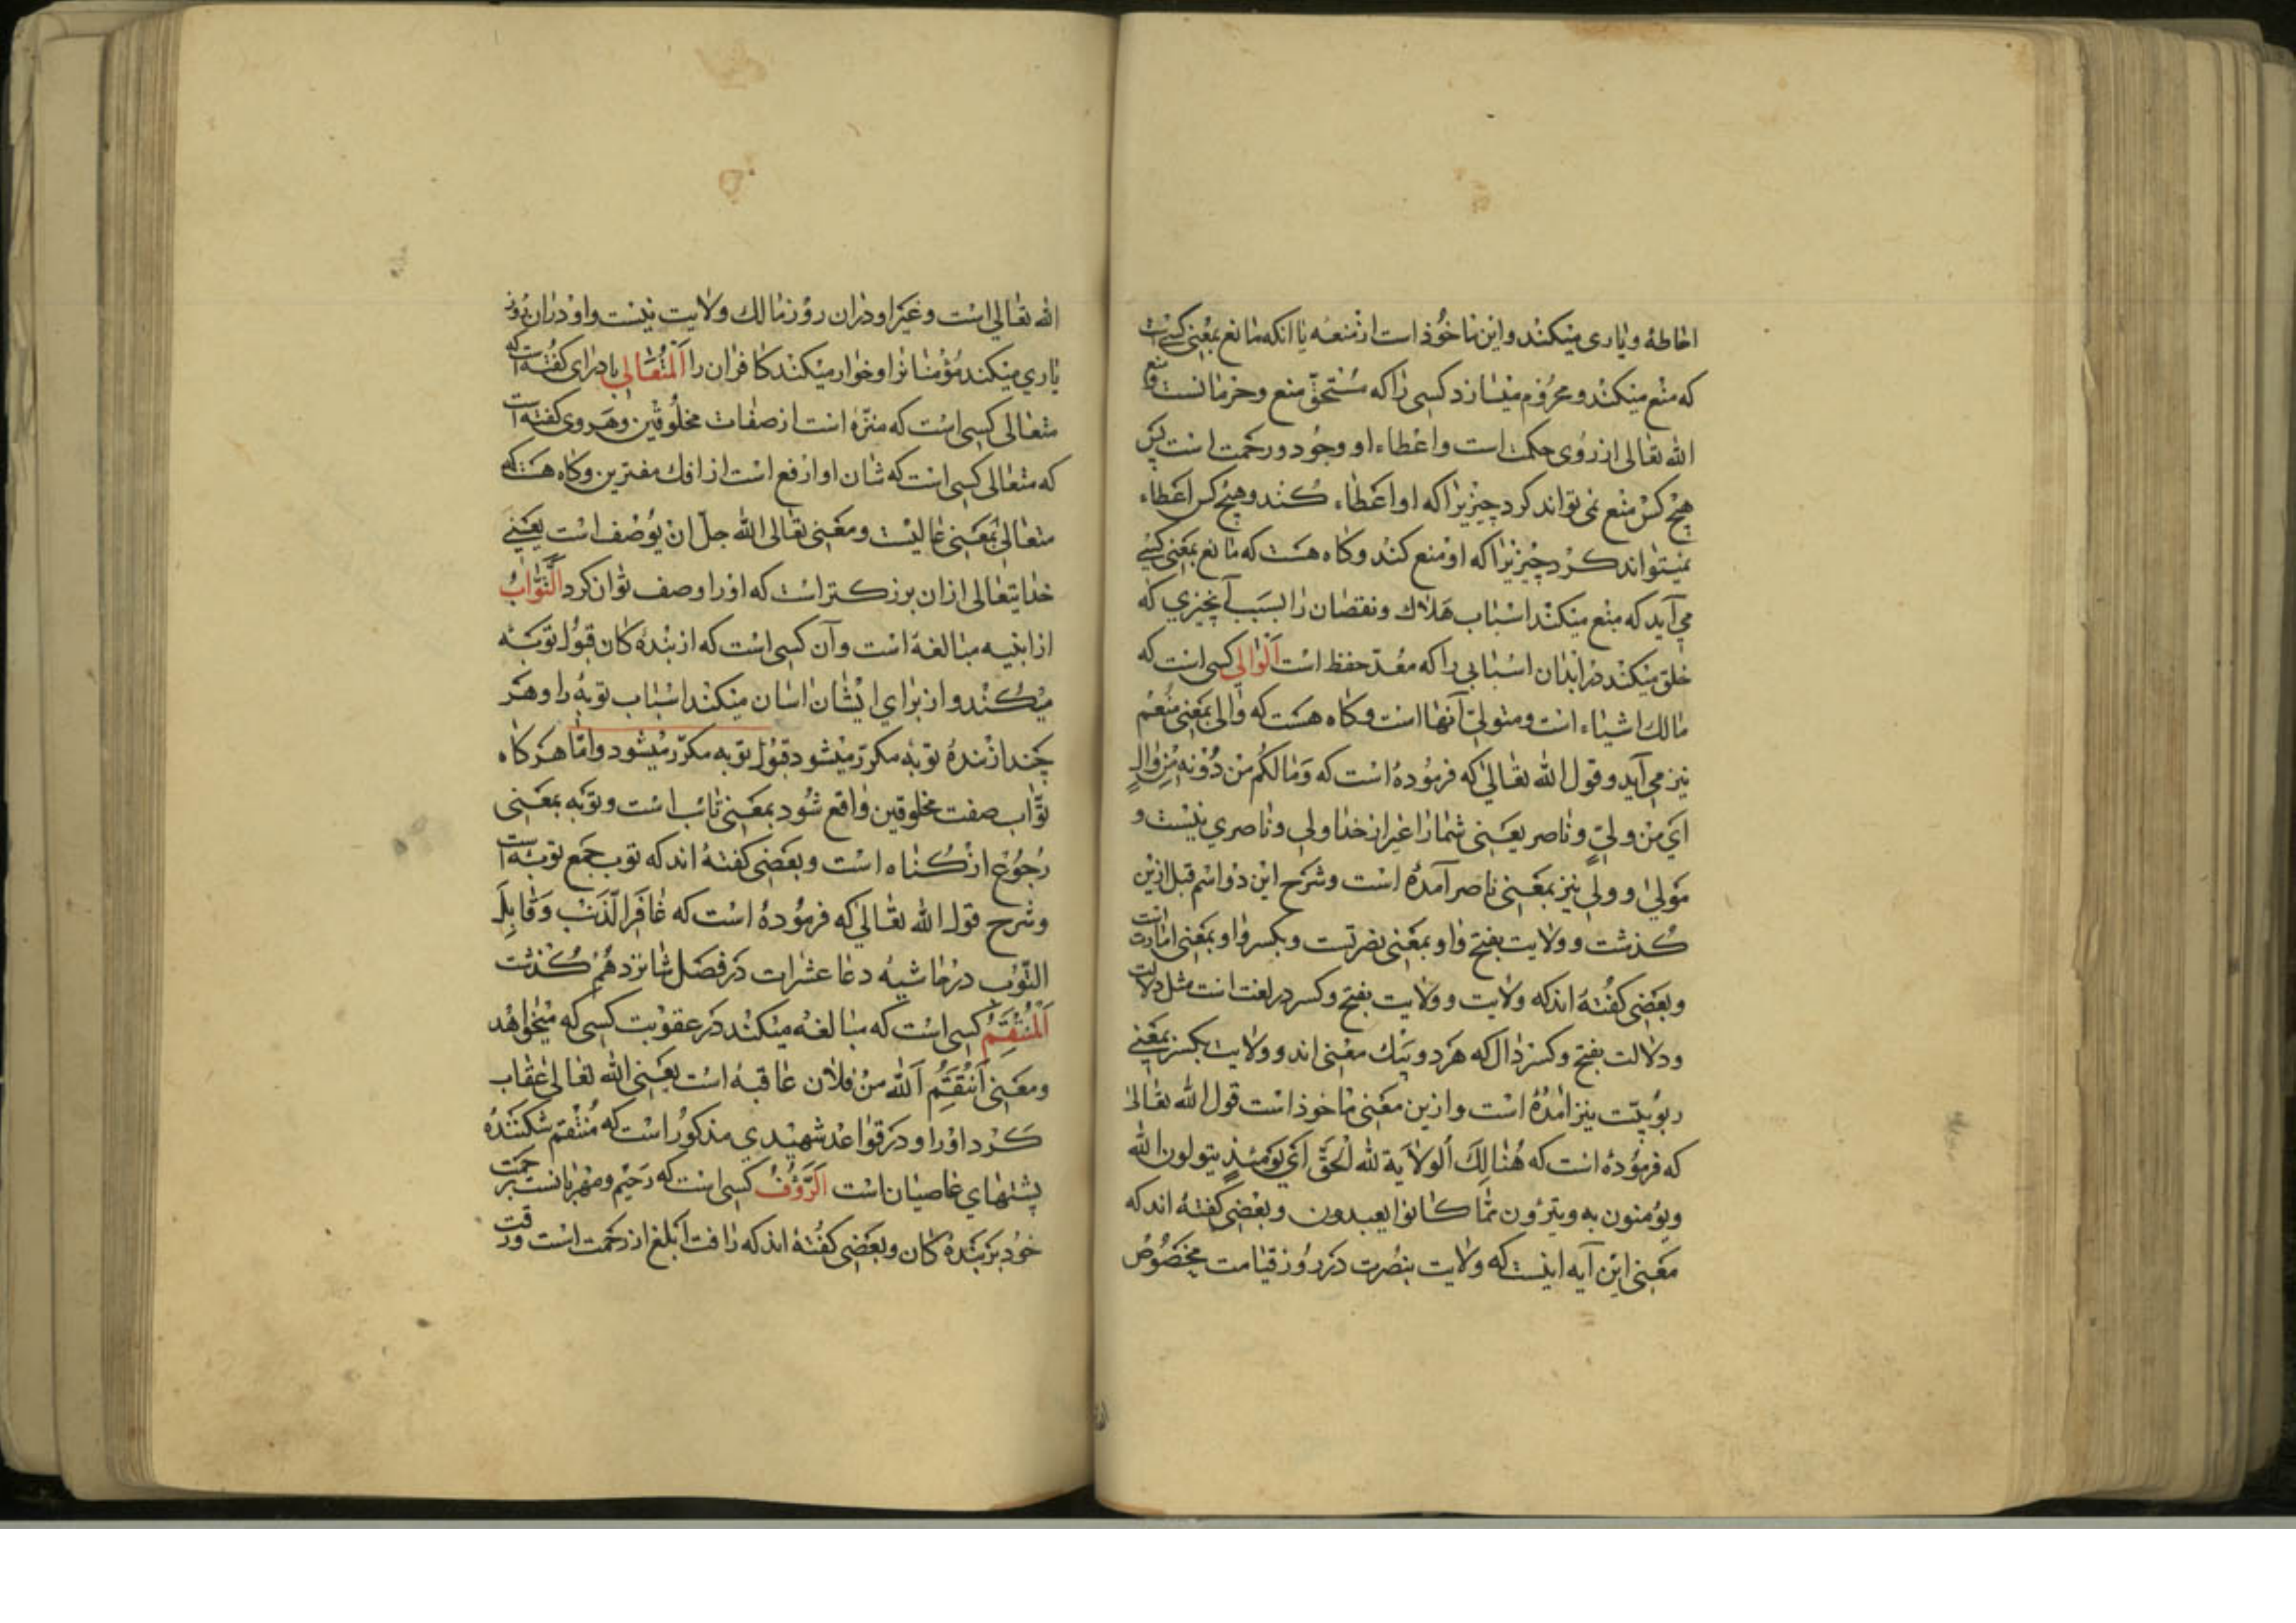 احاطهٔ و یاری میکند و این ماخوذ است از منعه یا انکه مانع بمعنی کسی است
که منع میکند و محروم میسازد کسی را که مستحقّ منع و حرمانست و منع
الله تعالی از روی حکمت است و اعطاء او وجود و رحمت است پس
هیچ کس منع نمی تواند کرد چیزیرا که او اعطاء کند و هیچ کس اعطاء
نمیتواند کرد چیزیرا که او منع کند و کاه هست که مانع بمعنی کسی
می آید که منع میکند اسباب هلاک و نقصان را بسبب آنچیزی که
خلق میکند در ابدان اسبابی را که معدّ حفظ است اَلْوالی کسی است که
مالک اشیاء است و متولّی آنها است و کاه هست که والی بمعنی منعم
نیز می آید و قول الله تعالی که فرموده است که وَمَا لَكُمْ مِنْ دُوْنِهِ مِنْ والٍ
اَیْ مِنْ ولیٍّ و ناصر یعنی شما را غیر از خدا ولی و ناصری نیست و
مَولیٰ و ولی نیز بمعنی ناصر آمدهٔ است و شرح این دو اسم قبل ازین
کذشت و ولایت بفتح واو بمعنی نصرتست و بکسر واو بمعنی امارت است
و بعضی کفتهٔ اند که ولایت و ولایت بفتح و کسر در لغت است مثل دلالت
و دلالت بفتح و کسر دال که هر دو بیک معنی اند و ولایت بکسر بمعنی
ربوبیّت نیز امدهٔ است و ازین معنی ماخوذ است قول الله تعالیٰ
که فرمودهٔ است که هُنٰالِكَ اَلْوِلاٰيَة لله الْحَقّ اَیْ یَومَئِذٍ یتولون الله
ویؤمنون به و یتبرّؤن ممّا كانوا یعبدون و بعضی کفتهٔ اند که
معنی این آیه اینست که ولایت بنصرت در روز قیامت مخصوص
الله تعالی است و غیر او در ان روز مالک ولایت نیست و او در ان روز
یاری میکند مؤمنانرا و خوار میکند کافران را اَلْمُتَعٰالی بادرای کفته است که
متعالی کسی است که منزّه است از صفات مخلوقین و هروی کفته است
که متعالی کسی است که شان او ارفع است از افک مفترین و کاه هست که
متعالی بمعنی عالیست و معنی تعالی الله جلّ انْ یُوْصَف است یعنی
خدایتعالی از ان بزرکتر است که او را وصف توان کرد اَلتَّوّابُ
از ابنیه مبالغهٔ است و آن کسی است که از بندهٔ کان قبول توبه
میکند و از برای ایشان اسان میکند اسباب توبهٔ را و هر
چند از بندهٔ توبه مکرّر میشود قبول توبه مکرّر میشود و امّا هر کاه
توّاب صفت مخلوقین واقع شود بمعنی تائب است و توبه بمعنی
رجوع از کناه است و بعضی کفتهٔ اند که توب جمع توبه است
و شرح قول الله تعالی که فرمودهٔ است که غافر الذَّنب وَقابِل
التَّوْب در حاشیه دعا عشرات در فصل شانزدهم کذشت
اَلْمُنْتَقِمُ کسی است که مبالغه میکند در عقوبت کسی که میخواهد
و معنی اَنتَقَمَ اَللّٰه مِنْ فلان عاقبهٔ است یعنی الله تعالی عقاب
کرد او را و در قواعد شهیدی مذکور است که مُنتقم شکنندهٔ
پشتهای عاصیان است اَلرَّؤُفُ کسی است که رحیم و مهربانست برحمت
خود بر بندهٔ کان و بعضی کفتهٔ اند که رافت ابلغ از رحمت است و رقت